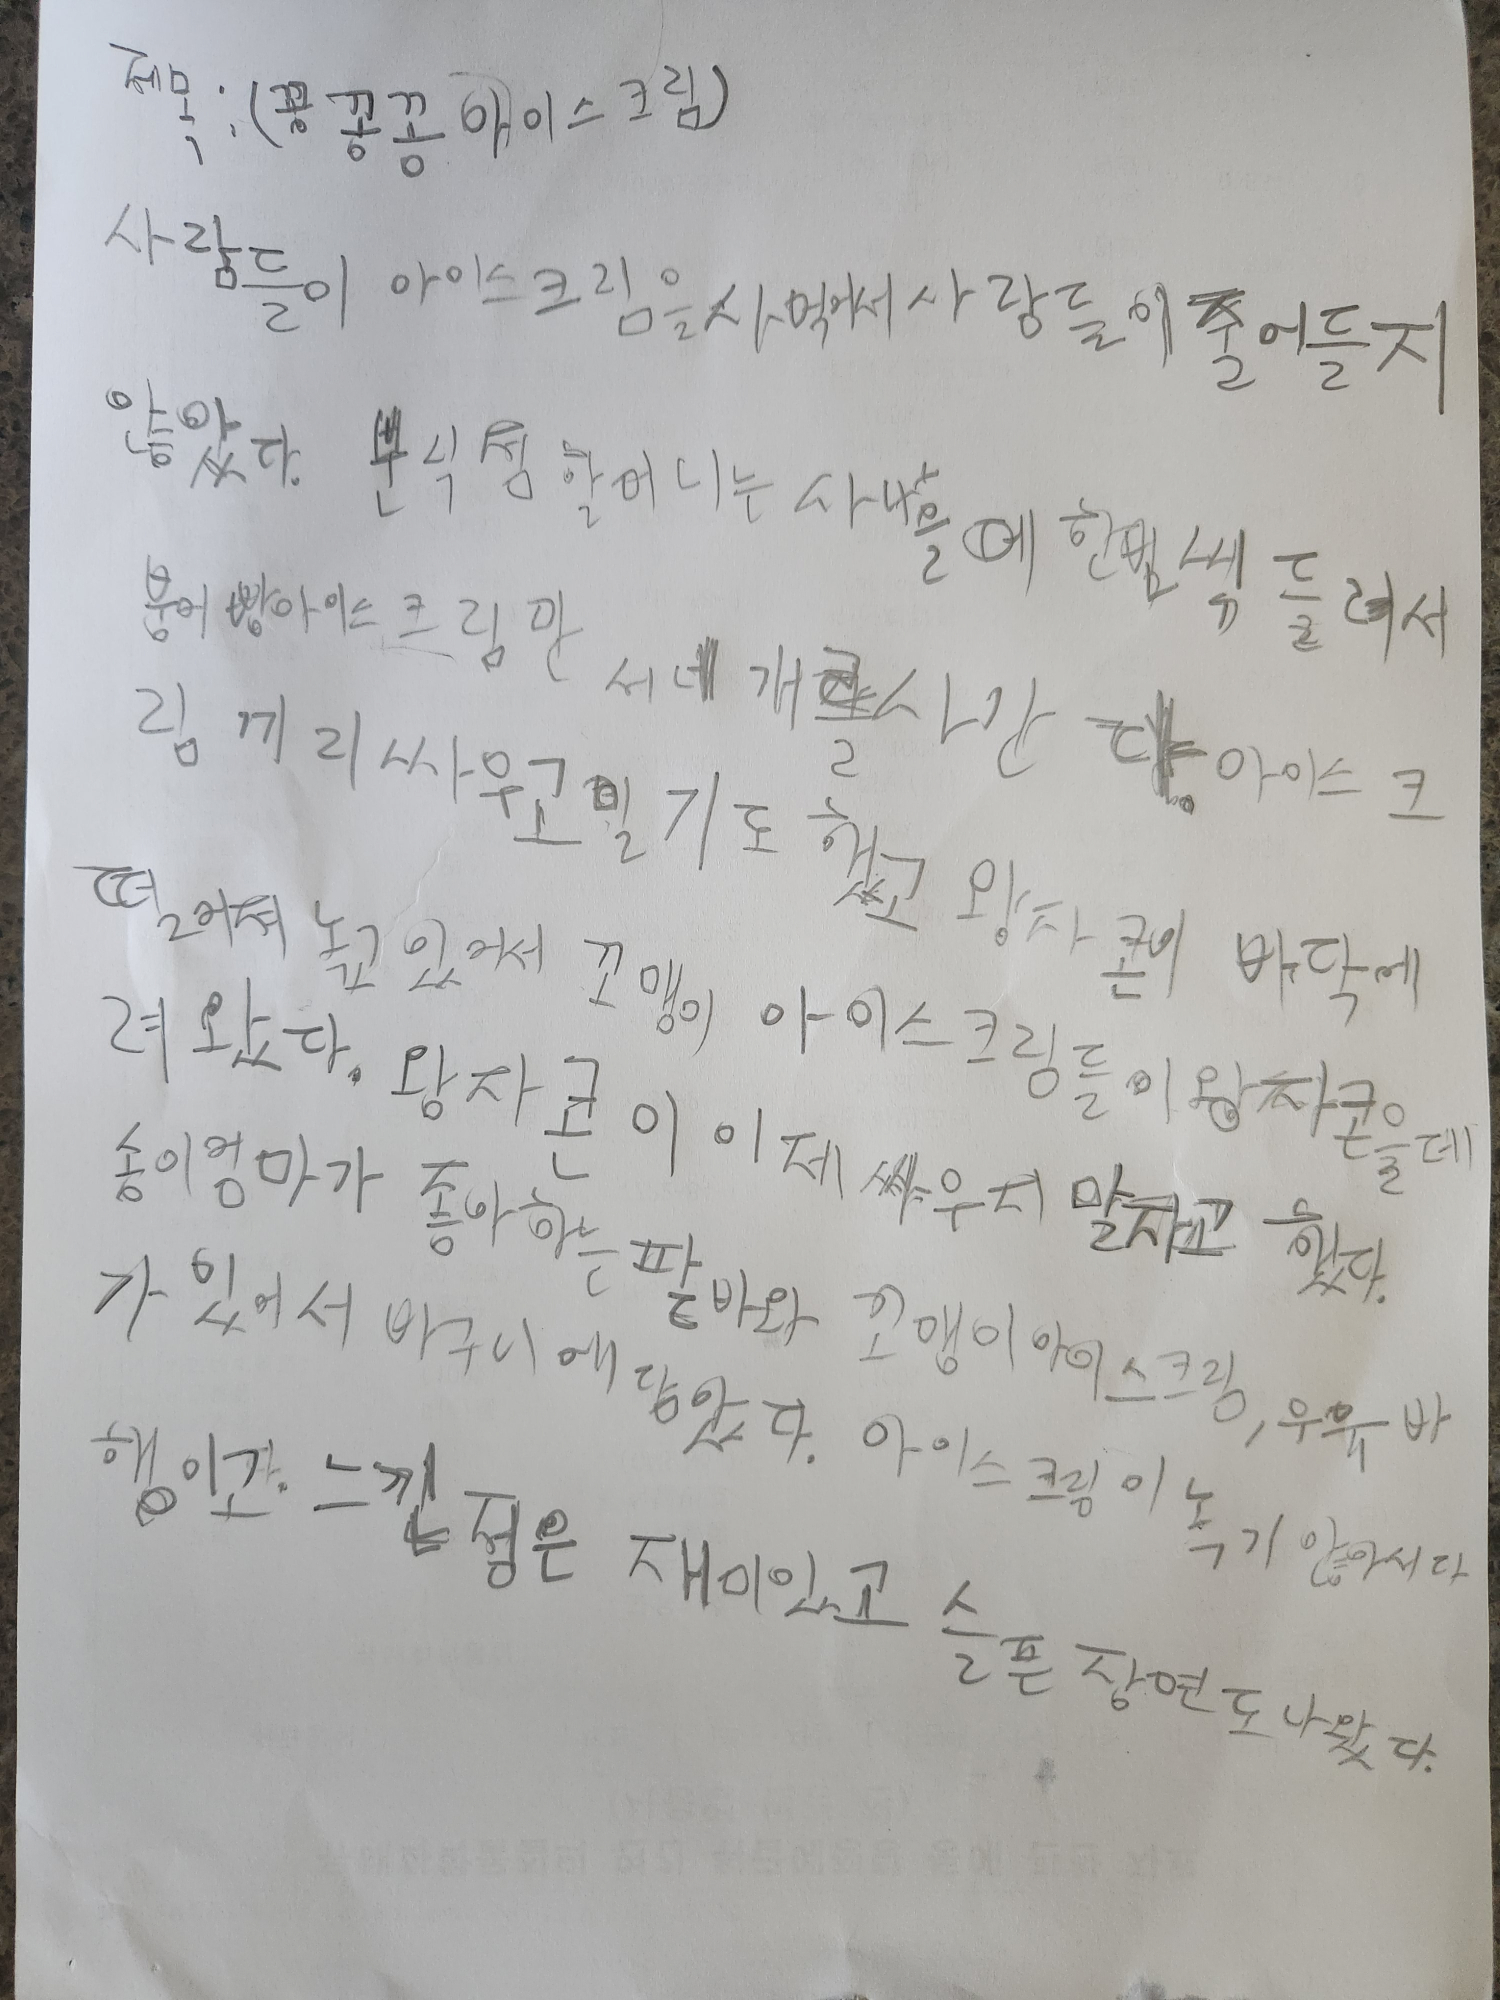 제목:(꽁꽁꽁 아이스크림)
사람들이 아이스크림을 사먹어서 사람들이 줄어들지
안않았다. 분식점 할머니는 사나흘에 한번씩 들려서
붕어빵아이스크림만 서네개를 사간다. 아이스크
림끼리 싸우고 밀기도 했고 왕자콘이 바닥에
떨어져 녹고 있어서 꼬맹이 아이스크림들이 왕자콘을데
려왔다. 왕자콘이 이제 싸우지 말자고 했다.
송이엄마가 좋아하는 팥바와 꼬맹이아이스크림, 우유바
가 있어서 바구니에 담았다. 아이스크림이 녹기 않아서다
행이고. 느낀점은 재미있고 슬픈 장면도 나왔다.